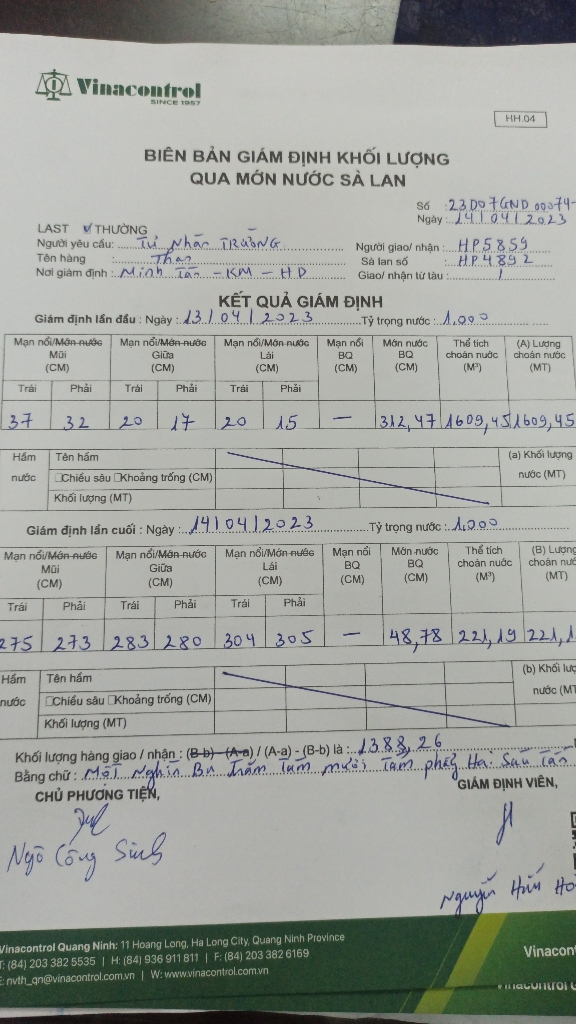 Vinacontrol
SINCE 1957
HH.04
BIÊN BẢN GIÁM ĐỊNH KHỐI LƯỢNG
QUA MỚN NƯỚC SÀ LAN
Số : 23D07GND 00074-
Ngày : 14/04/2023
LAST THƯỜNG
Người yêu cầu: Tư Nhân TRƯỜNG Người giao/ nhận : HP5859
Tên hàng : Than Sà lan số : HP4892
Nơi giám định : Minh Tân - KM - HD Giao/ nhận từ tàu : /
KẾT QUẢ GIÁM ĐỊNH
Giám định lần đầu : Ngày : 13/04/2023 Tỷ trọng nước : 1.000
Mạn nổi/Mớn nước Mũi (CM) Mạn nổi/Mớn nước Giữa (CM) Mạn nổi/Mớn nước Lái (CM) Mạn nổi BQ (CM) Mớn nước BQ (CM) Thể tích choán nước (M³) (A) Lượng choán nước (MT)
Trái Phải Trái Phải Trái Phải
37 32 20 17 20 15 — 312,47 1609,45 1609,45
Hầm nước Tên hầm (a) Khối lượng nước (MT)
□Chiều sâu □Khoảng trống (CM)
Khối lượng (MT)
Giám định lần cuối : Ngày : 14/04/2023 Tỷ trọng nước : 1.000
Mạn nổi/Mớn nước Mũi (CM) Mạn nổi/Mớn nước Giữa (CM) Mạn nổi/Mớn nước Lái (CM) Mạn nổi BQ (CM) Mớn nước BQ (CM) Thể tích choán nước (M³) (B) Lượng choán nước (MT)
Trái Phải Trái Phải Trái Phải
275 273 283 280 304 305 — 48,78 221,19 221,1
Hầm nước Tên hầm (b) Khối lượ nước (MT
□Chiều sâu □Khoảng trống (CM)
Khối lượng (MT)
Khối lượng hàng giao / nhận : (B-b) - (A-a) / (A-a) - (B-b) là : 1388,26
Bằng chữ : Một Nghìn Ba Trăm Tám mươi Tám phẩy Hai Sáu Tấn
CHỦ PHƯƠNG TIỆN, GIÁM ĐỊNH VIÊN,
Ngô Công Sinh
Nguyễn Hữu Ho
Vinacontrol Quang Ninh: 11 Hoang Long, Ha Long City, Quang Ninh Province
T: (84) 203 382 5535 | H: (84) 936 911 811 | F: (84) 203 382 6169
E: nvth_qn@vinacontrol.com.vn | W: www.vinacontrol.com.vn
Vinacon